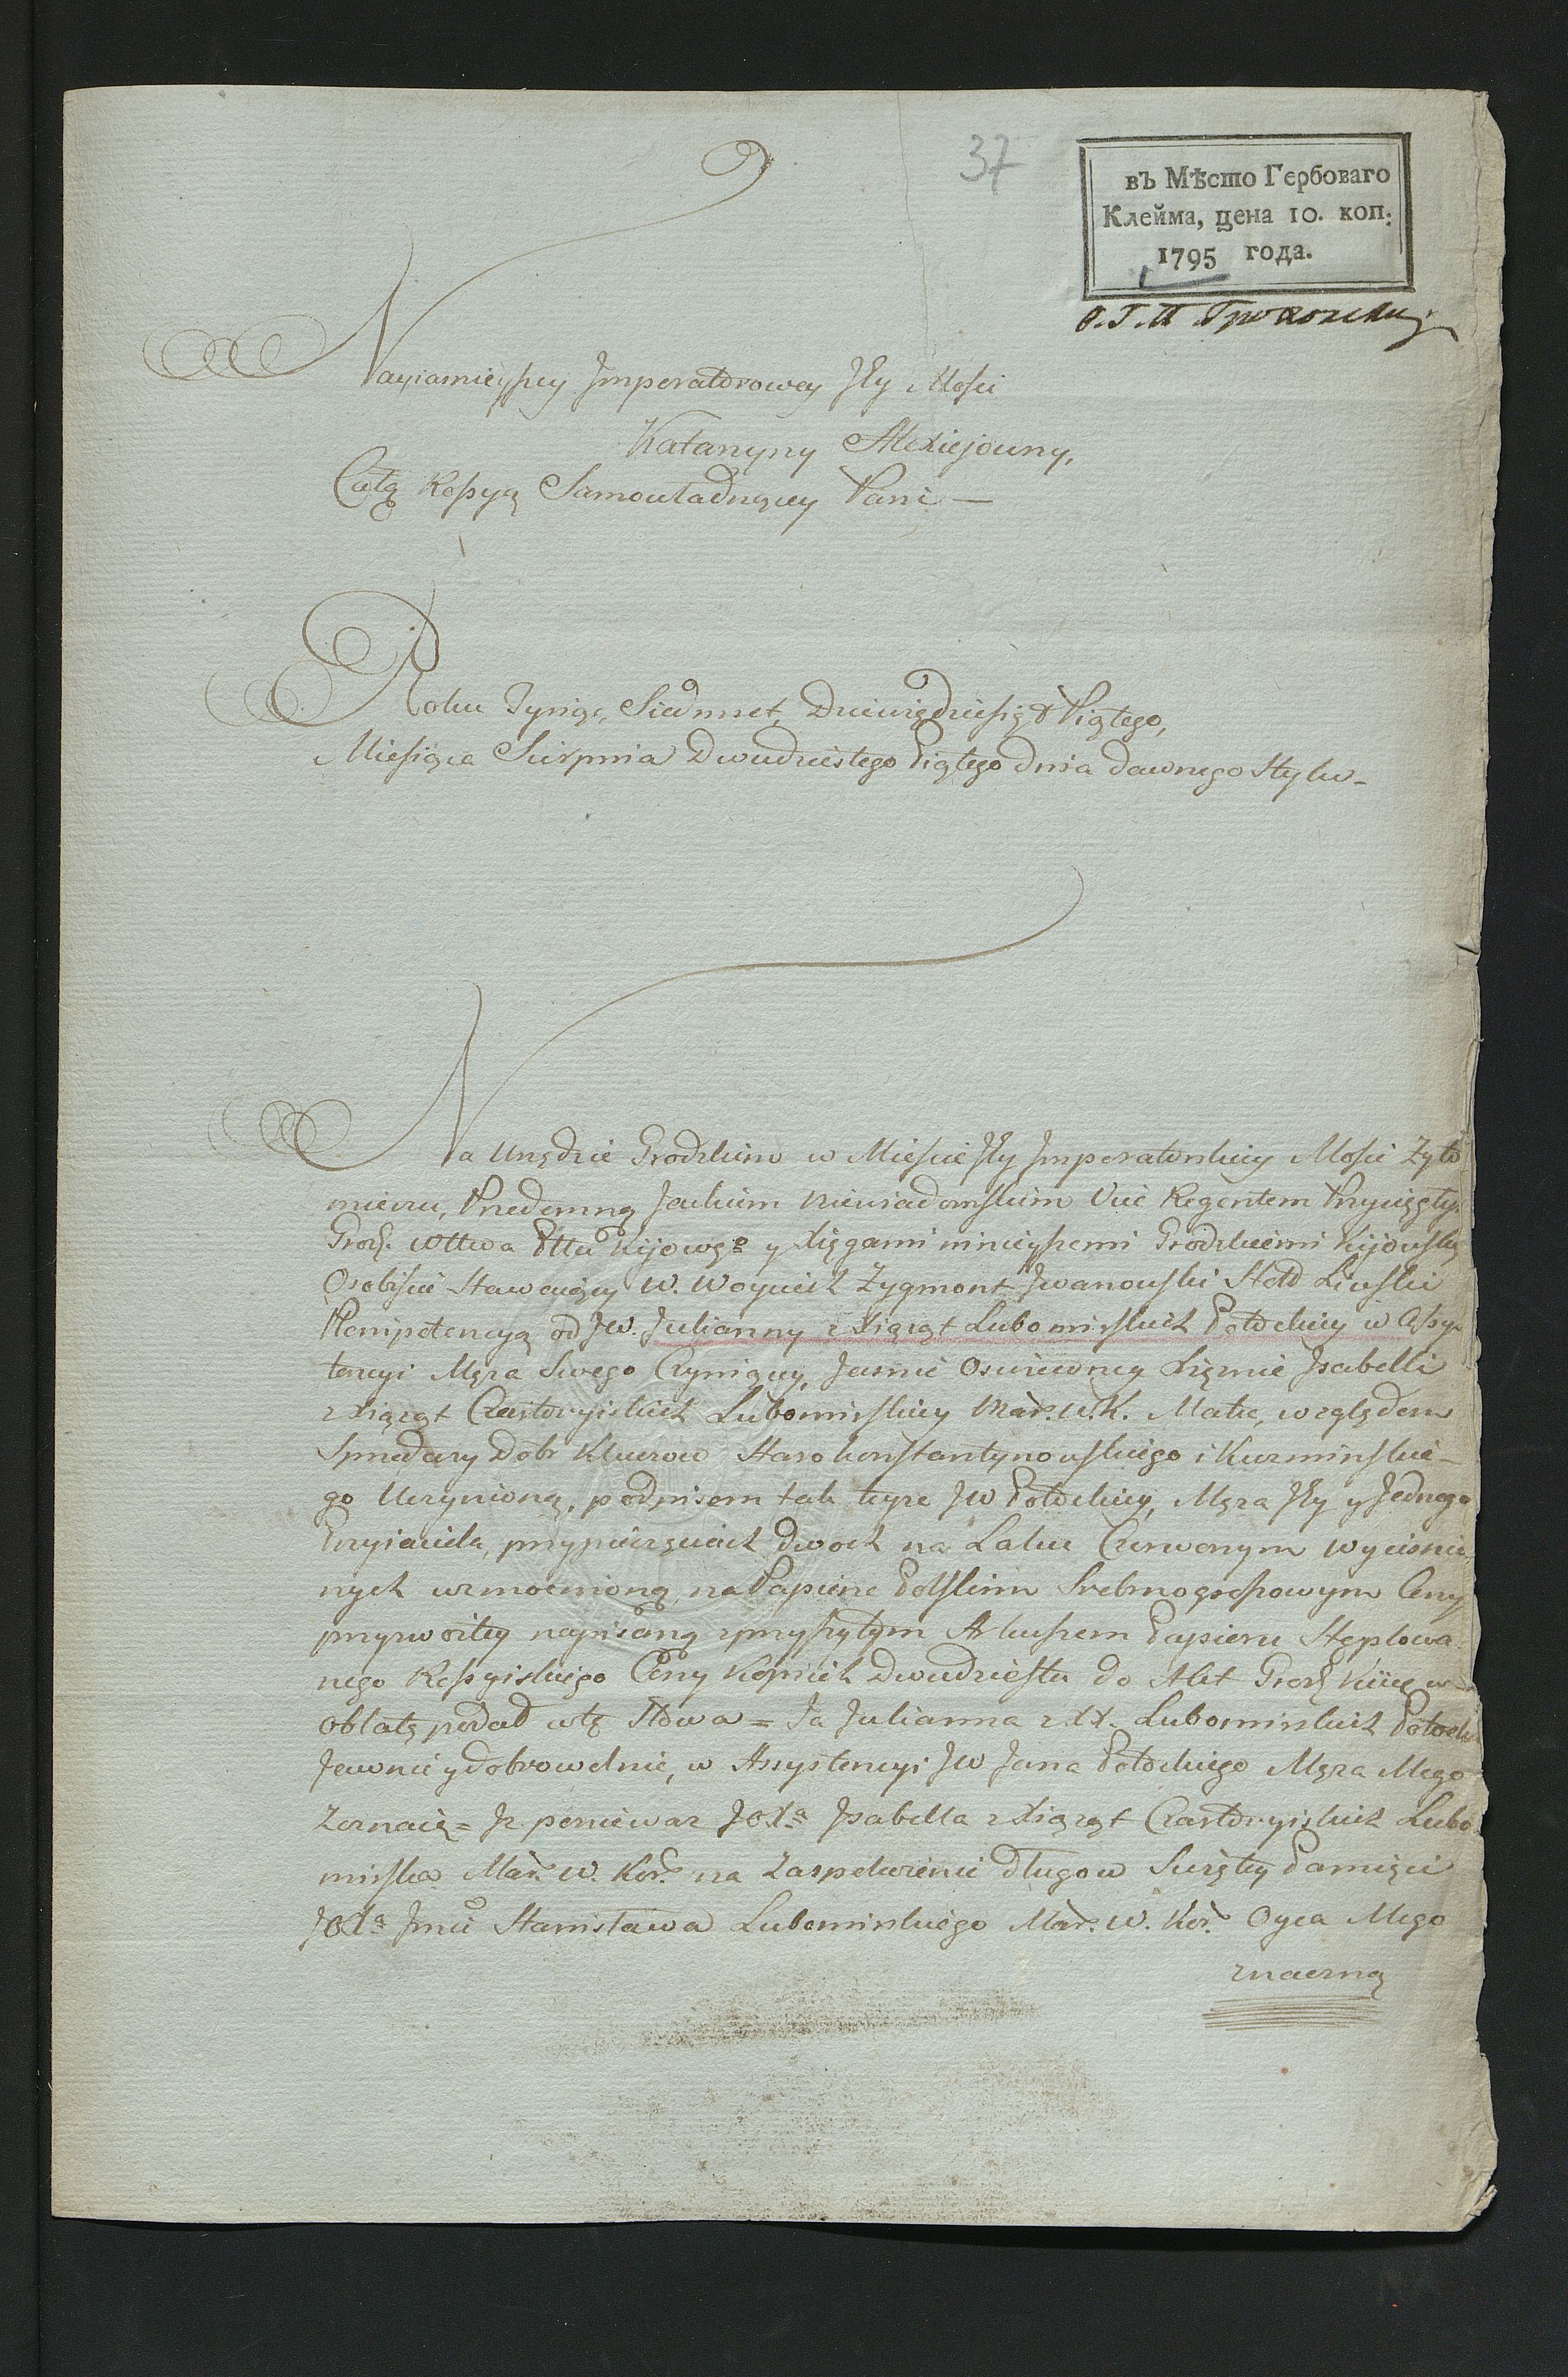 37
въ Мѣсто Гербоваго
Клейма, цена 10. коп.
1795 года.
Nayiasnieyszey Imperatorowey Jey Mości
Katarzyny Alexiejowny,
Całą Rossyą Samowładnącey Pani —
Roku Tysiąc, Siedmset, Dziewiędziesiąt Piątego,
Miesiąca Sierpnia Dwudziestego Piątego dnia dawnego Stylu -
Na Urzędzie Grodzkim w Mieście Jey Imperatorskiey Mości Żyto
mierzu, Przedemną Jackiem Niewiadomskim Vice Regentem Przysięgłym
Grodz. Wttwa Kijowgo y Xięgami ninieyszemi Grodzkiemi Kijowskie
Osobiście Stawaiący W. Woyciech Zygmont Jwanowski Stold Liwski
Plenipotencyą od JW. Julianny z Xiążąt Lubomirskich Potockiey w Assys
tencyi Męża Swego Czyniącey, Jaśnie Oświeconey Xiężnie Jsabelli
z Xiążąt Czartoryiskich Lubomirskiey Mar. W. K. Matce, względem
Sprzedaży Dobr Kluczow Starokonstantynowskiego i Kuzminskie-
go Uczynioną, podpisem tak teyże JW Potockiey, Męża Jey y Jednego
Przyiaciela, przy pieczęciach dwoch na Laku Czerwonym wyciśnio
nych wzmocnioną, na Papierze Polskim Srebrnogroszowym Ceny
przyzwoitey napisaną z przyszytym Arkuszem Papieru Stęplowa
nego Rossyiskiego Ceny Kopiiek Dwudziestu do Akt Grodz Kiiow w
Oblatę podał w tę Słowa = Ja Julianna z XX. Lubomirskich Potocka
Jawnie y dobrowolnie, w Assystencyi JW Jana Potockiego Męża Mego
Zeznaię = Jż ponieważ JOXa Jsabella z Xiążąt Czartoryiskich Lubo
mirska Mar. W. Kor. na Zaspokoienie długow Swiętey Pamięci
JOXa Jmci Stanisława Lubomirskiego Mar. W. Kor. Oyca Mego
znaczną